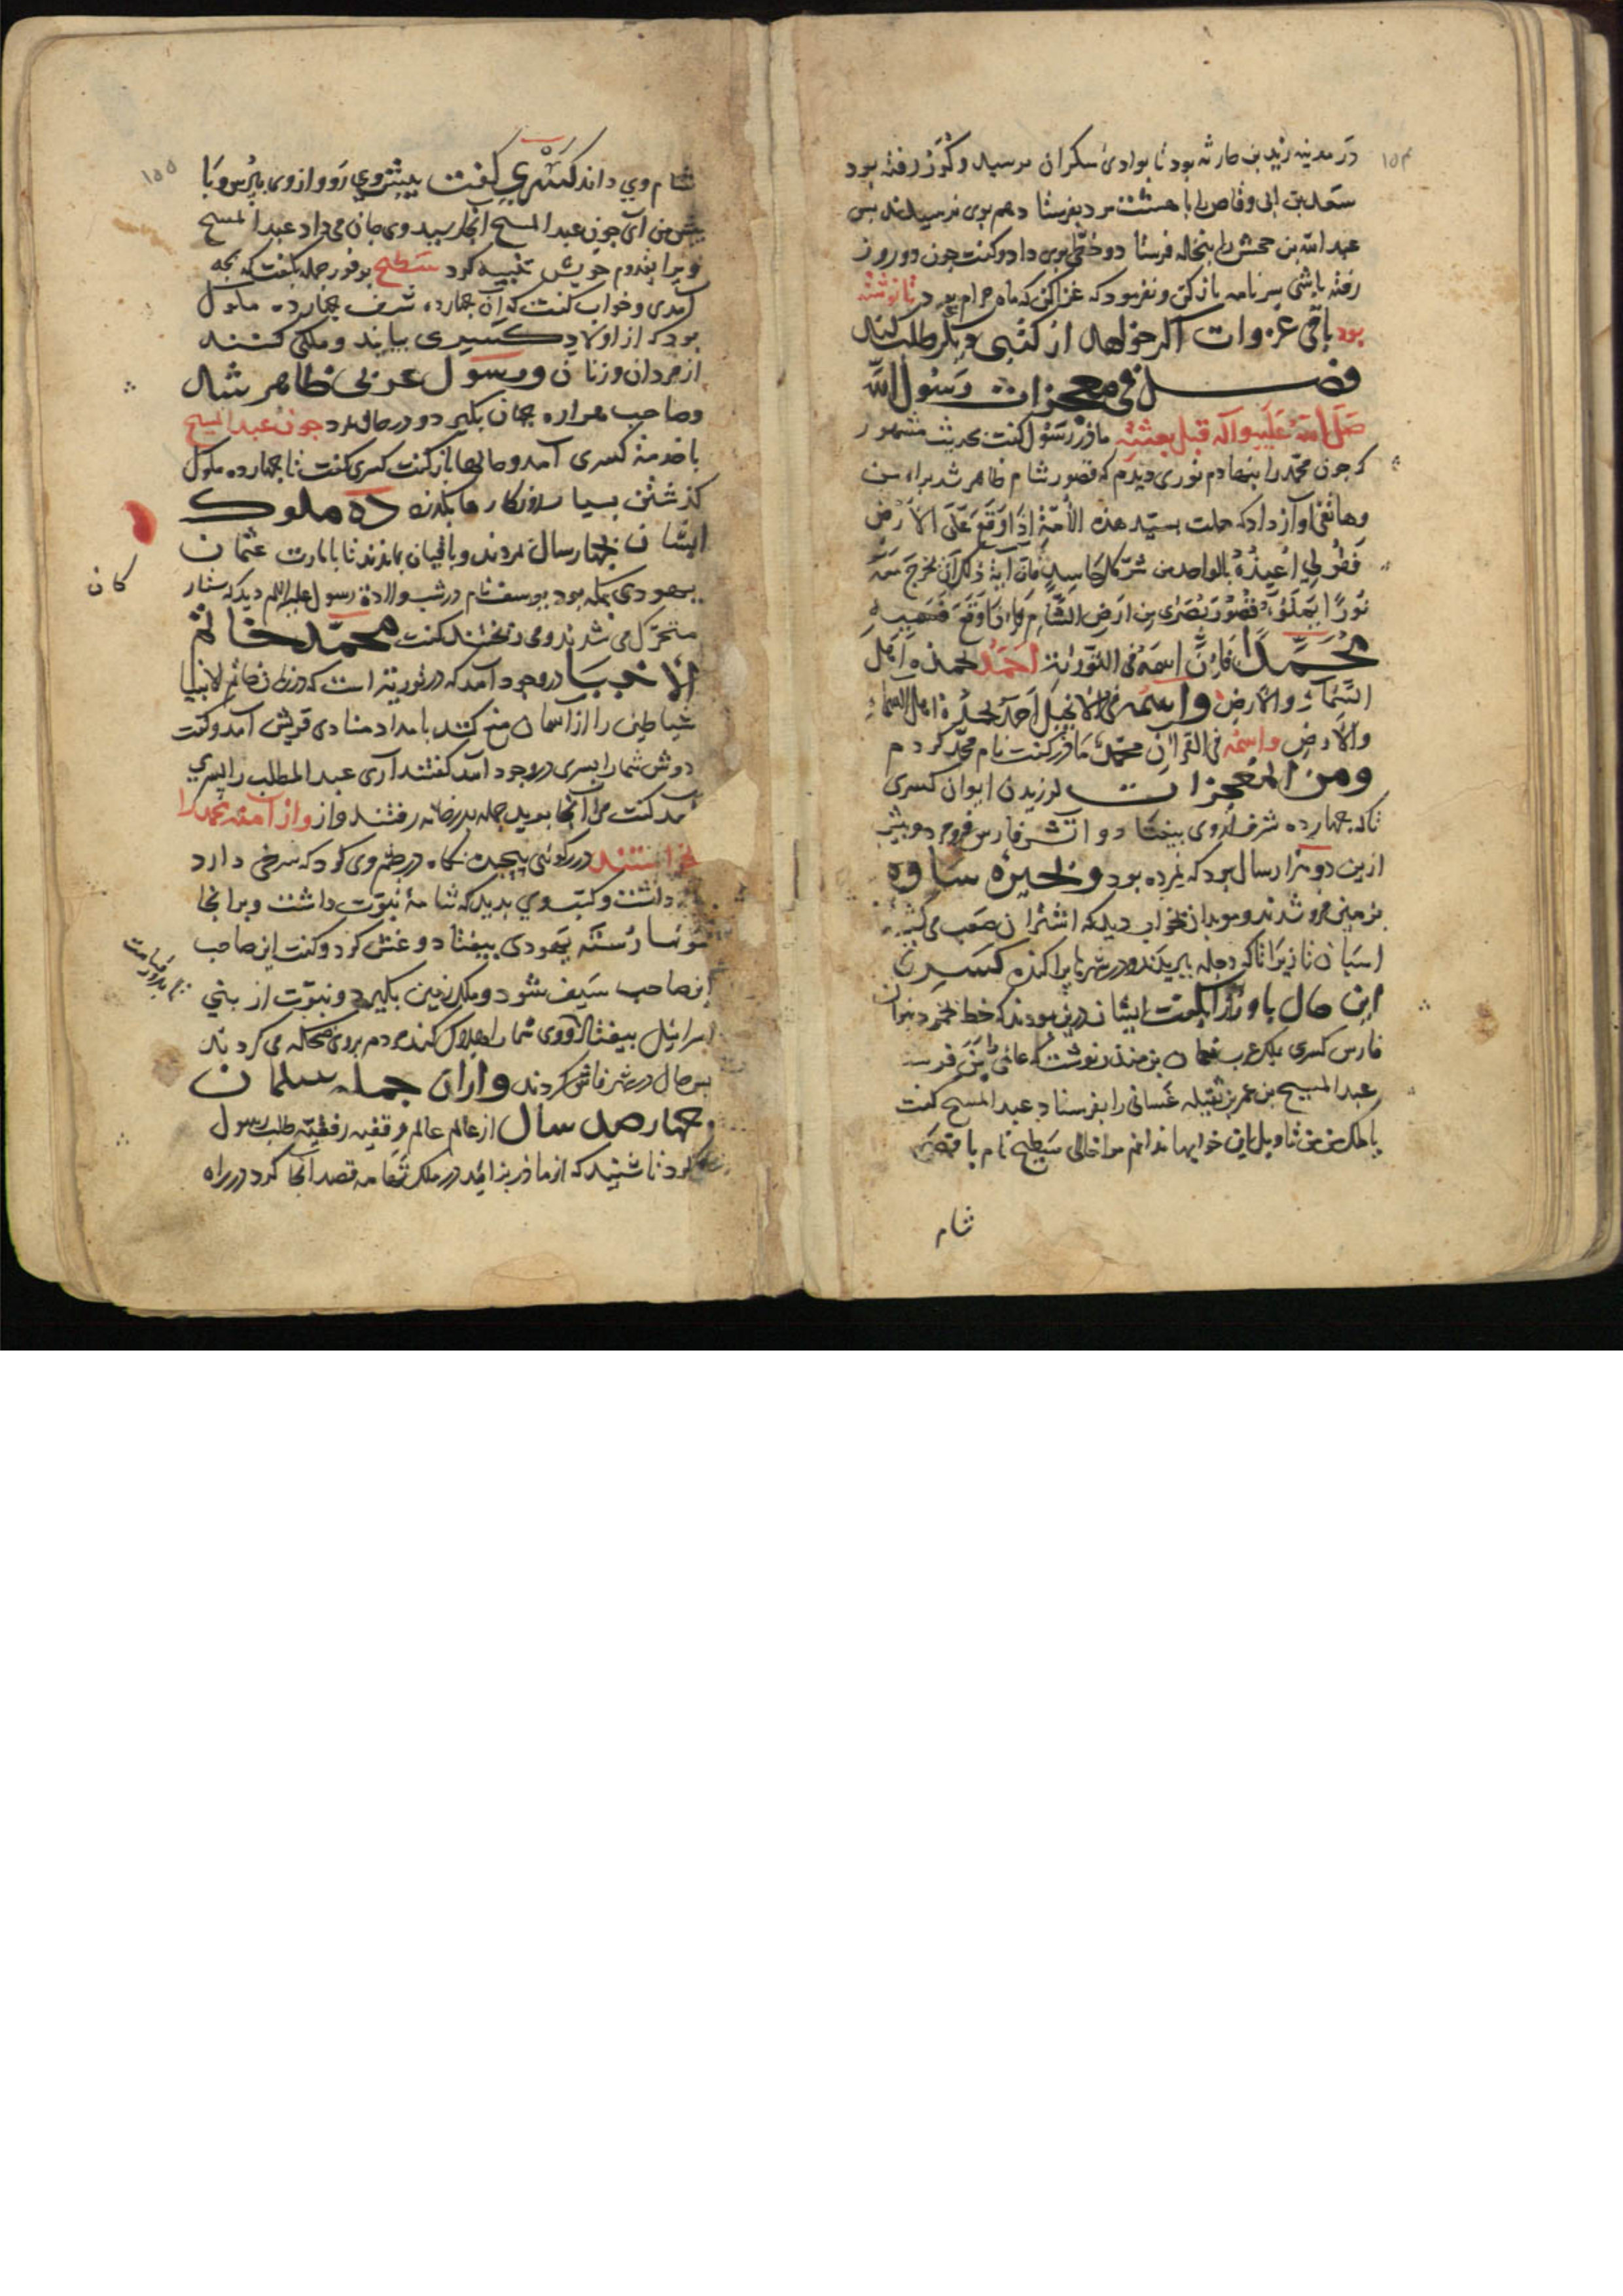 در مدینه زید بن حارثه بود تا بوادی سکران برسید و کرز رفته بود
سعد بن ابی وقاص را با هشت مرد بفرستاد هم بوی نرسیدند پس
عبد الله بن جحش را بنخله فرستاد و خطی بوی داد و گفت چون دو روز
رفته باشی سر نامه باز کن و نفرمود که غزا کن که ماه حرام بود تا نوشته
بود باقی غزوات اگر خواهد از کتبی دیگر طلب کند
فصل فی معجزات رسول الله
صلی الله علیه وآله قبل بعثته مادر رسول گفت بحدیث مشهور
که چون محمد را بنهادم نوری دیدم که قصور شام ظاهر شد برای من
وهاتفی آواز داد که حملت بسید هذه الأمة إذا وقع علی الأرض
فقولی أعیذه بالواحد من شر کل حاسد فان آیة ذلک ان یخرج معه
نورا یملؤ قصور بصری من ارض الشام فاذا وقع فسمیه
محمدا فان اسمه فی التوراة احمد یحمده اهل
السماء والأرض واسمه فی الانجیل احمد یحمده اهل السماء
والأرض واسمه فی القرآن محمد مادر گفت نام محمد کردم
ومن المعجزات لرزیدن ایوان کسری
تا که چهارده شرف از وی بیفتاد و اتش فارس فرو مرد و بیش
ازین دو هزار سال بود که نمرده بود و بحیره ساوه
بزمین فرو شد و موبدان بخواب دید که اشتران صعب می کشید
اسبان تازی را تا که دجله ببریدند و در شهرها پراکنده کسری
این حال با وزرا بگفت ایشان درین بودند که خط
فارس کسری بملک عرب نعمان بن منذر نوشت که عالمی بمن فرست
عبد المسیح بن عمر بن نفیله غسانی را بفرستاد عبد المسیح گفت
یا ملک من تاویل این خوابها ندانم مرا خالی سطیح نام باقصی
شام
۱۵۴
۱۵۵
شام وی داند کسری گفت پیش وی رو و از وی بپرس و با
پیش من آی چون عبد المسیح آنجا رسید وی جان می داد عبد المسیح
ویرا بقدوم خویش تنبیه کرد سطیح بر فور جمله بگفت که بچه
آمدی و خواب گفت که آن چهارده شرف چهارده ملوک
بود که از اولاد کسری بیایند و ملکی کنند
از مردان و زنان و رسول عربی ظاهر شد
وصاحب هراوه جهان بگیرد و در حال بمرد چون عبد المسیح
با خدمة کسری آمد و حالها باز گفت کسری گفت تا چهارده ملوک
گذشتن بسیار روزگارها بگذرد ده ملوک
ایشان بچهار سال بمردند و باقیان بماندند تا بامارت عثمان
یهودی بمکه بود یوسف نام در شب ولادة رسول علیه السلم دید که ستار
کان
متحرک می شدند و می ریختند گفت محمد خاتم
الانبیا در وجود آمد که در توریة است که در زمان خاتم الانبیا
شیاطین را از اسمان منع کنند بامداد منادی قریش آمد و گفت
دوش شما را پسری در وجود آمد گفتند آری عبد المطلب را پسری
آمد گفت مرا آنجا برید جمله بدر خانه رفتند و از آمنه محمد را
خواستند در رگوئی پیچیده نگاه در چشم وی کرد که سرخی دارد
داشت و کتف وی بدید که شامة نبوت داشت و بر آنجا
مویها رسته یهودی بیفتاد و غش کرد و گفت این صاحب
این صاحب سیف شود و ملک زمین بگیرد و نبوت از بنی
اسرائیل بیفتاد و وی شما را هلاک کند مردم بروی ضحکه می کردند
پس حال در شهر فاش کردند و از آن جمله سلمان
چهار صد سال از عالم عالم و رفقیه رفقیه طلب رسول
کرد تا شنید که از مادر بزائید در ملک تهامه قصد آنجا کرد در راه